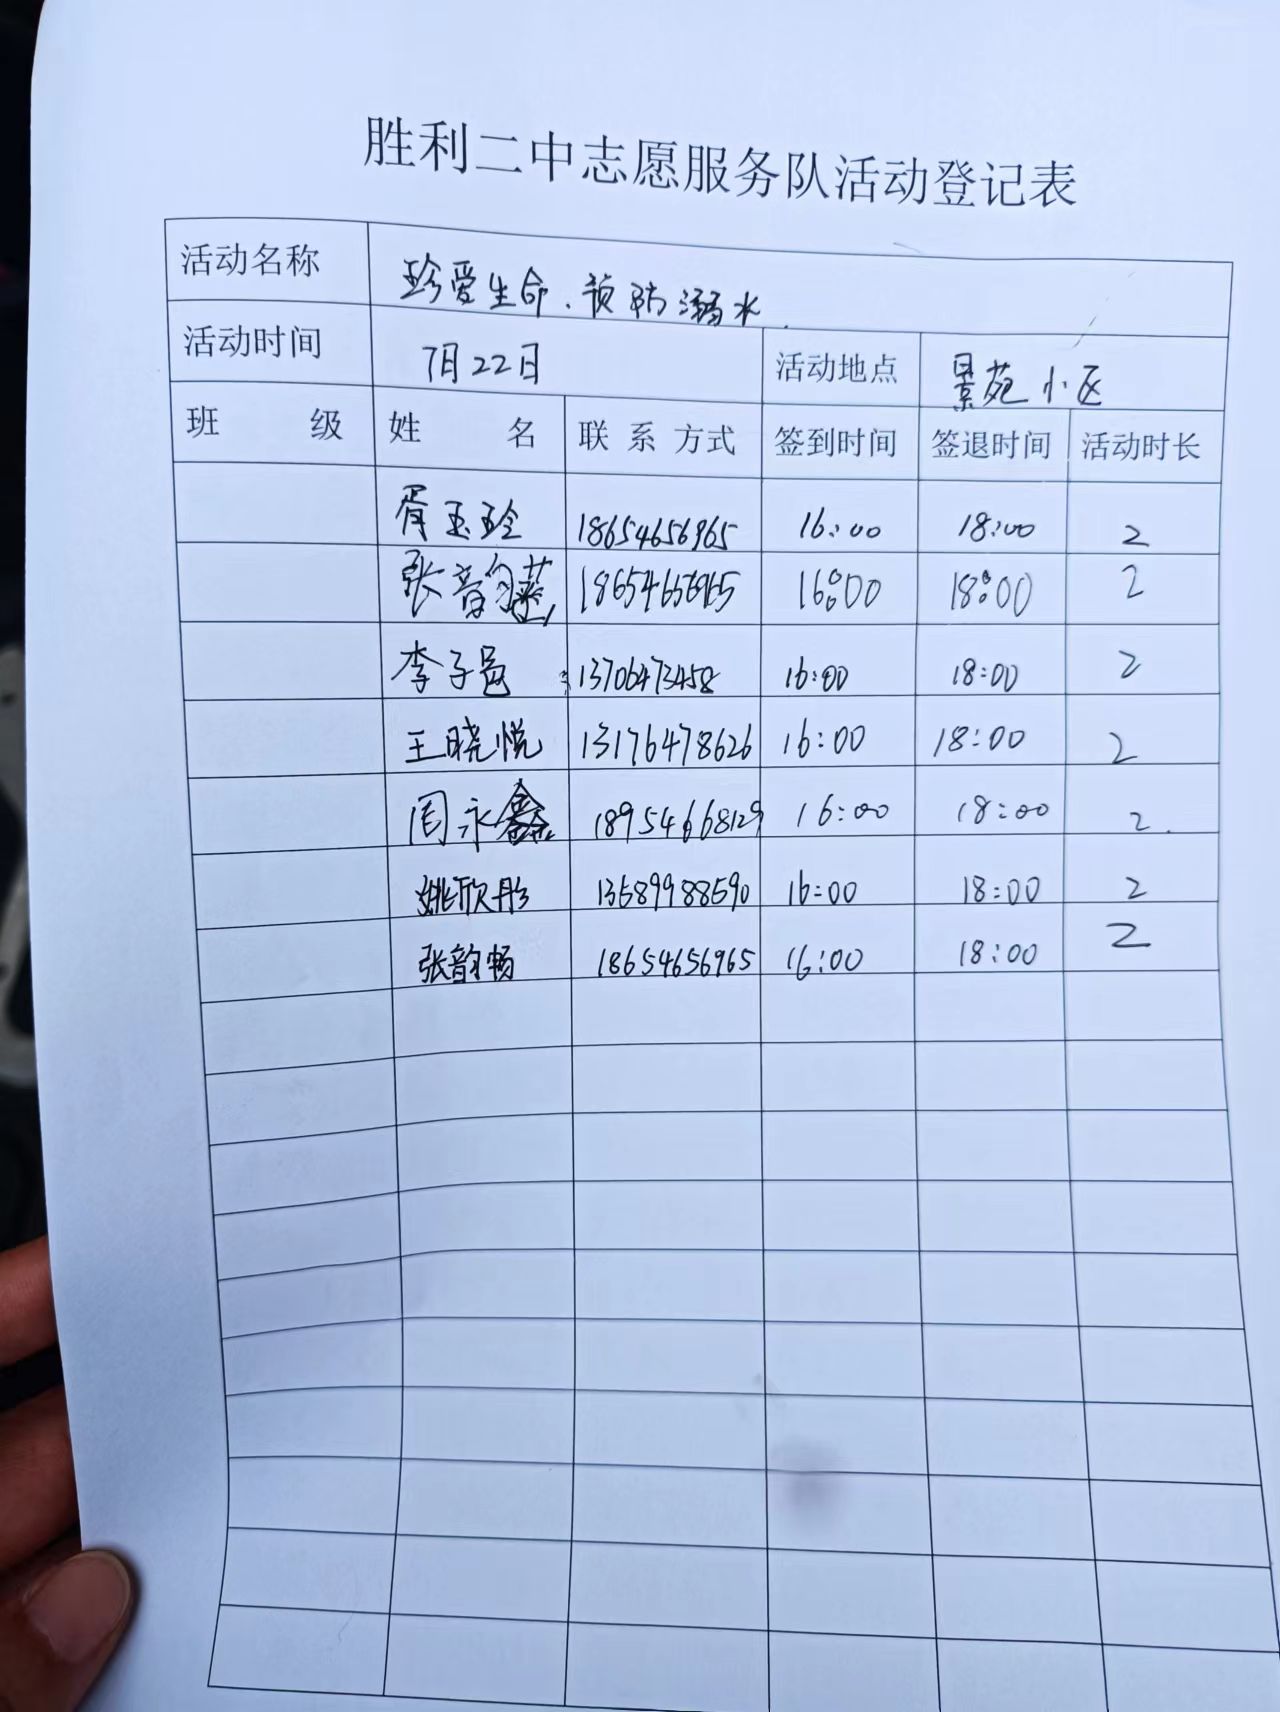 胜利二中志愿服务队活动登记表
活动名称 珍爱生命、预防溺水
活动时间 7月22日 活动地点 景苑小区
班 级 姓 名 联系方式 签到时间 签退时间 活动时长
胥玉玲 18654656965 16:00 18:00 2
张韵 18654656965 16:00 18:00 2
李子邑 13706473458 16:00 18:00 2
王晓悦 13176478626 16:00 18:00 2
周永鑫 18954668129 16:00 18:00 2
姚欣彤 13589988590 16:00 18:00 2
张韵畅 18654656965 16:00 18:00 2